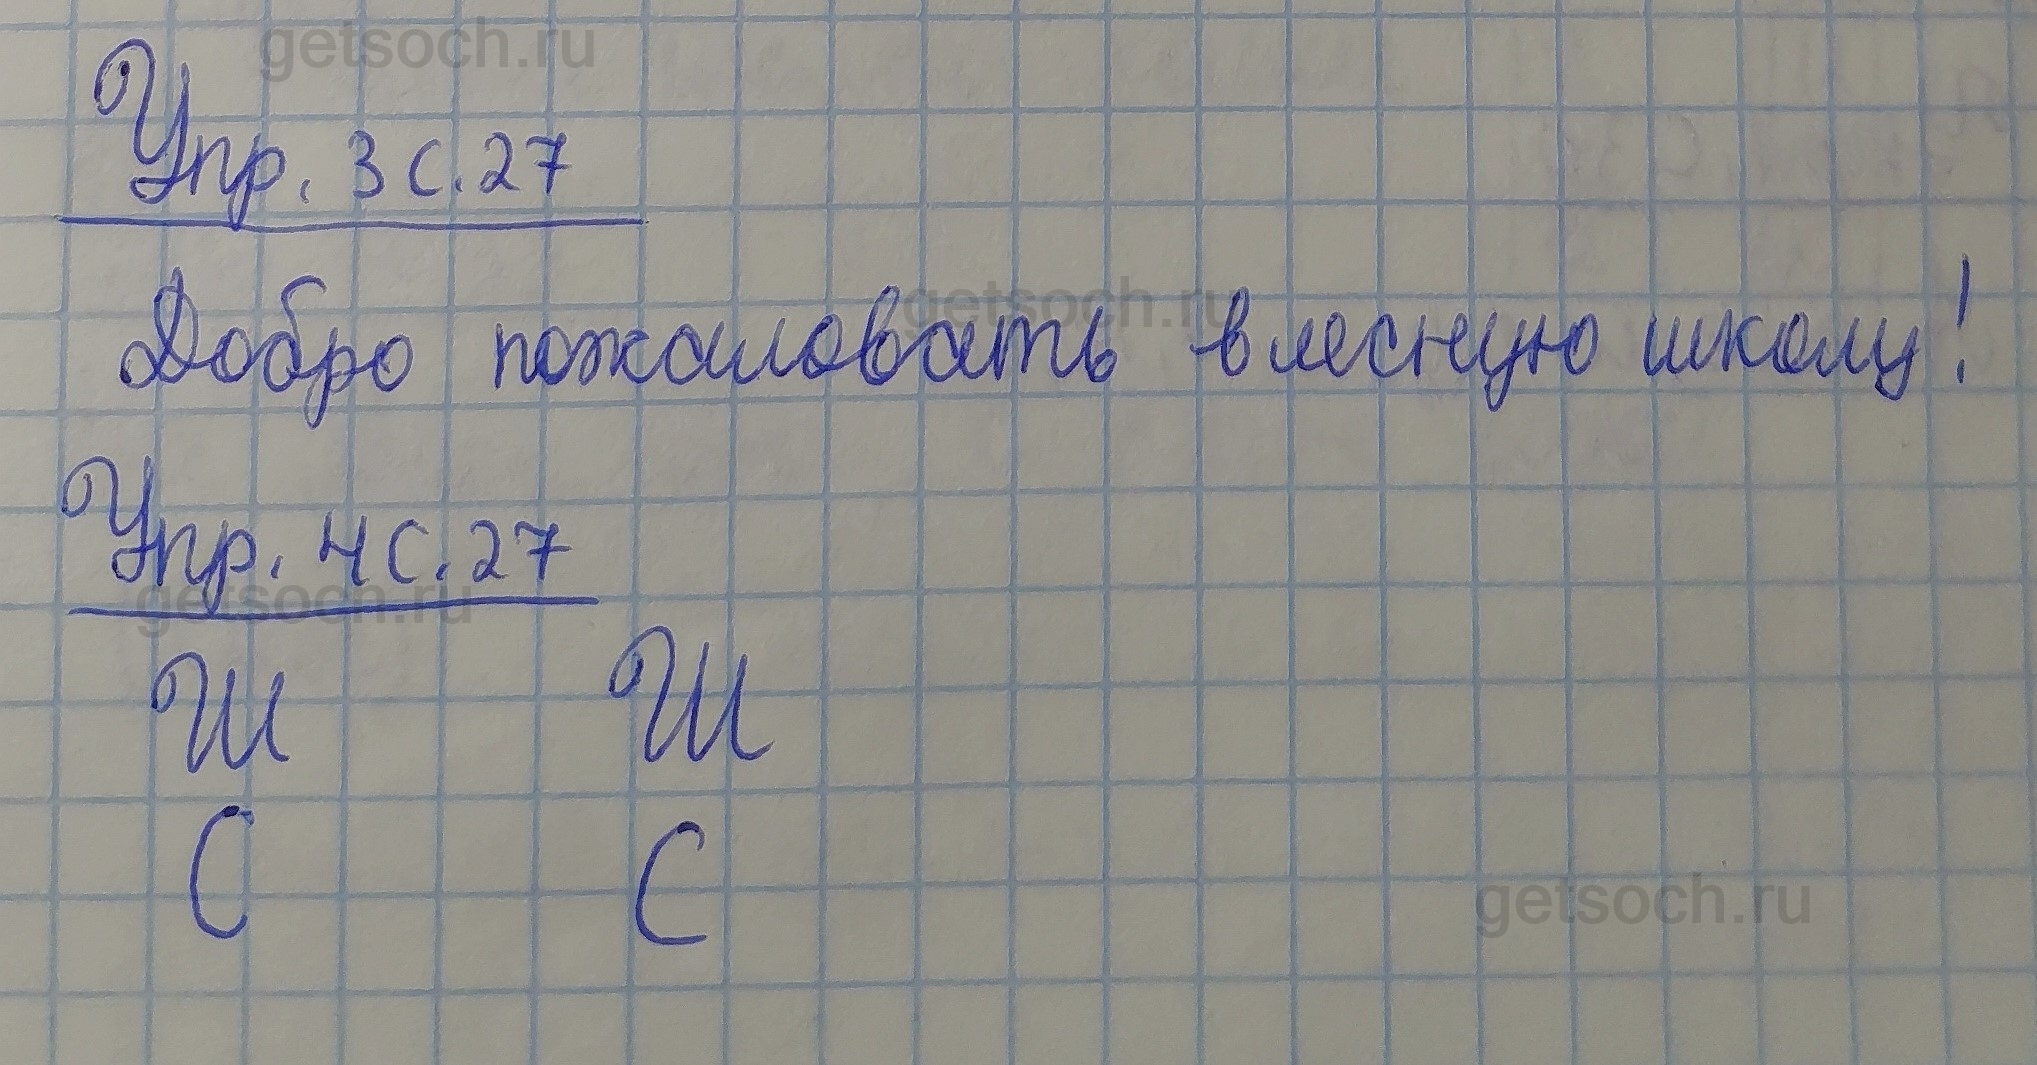 getsoch.ru
Упр. 3 с. 27
getsoch.ru
Добро пожаловать в лесную школу!
Упр. 4 с. 27
getsoch.ru
Ш Ш
С С
getsoch.ru